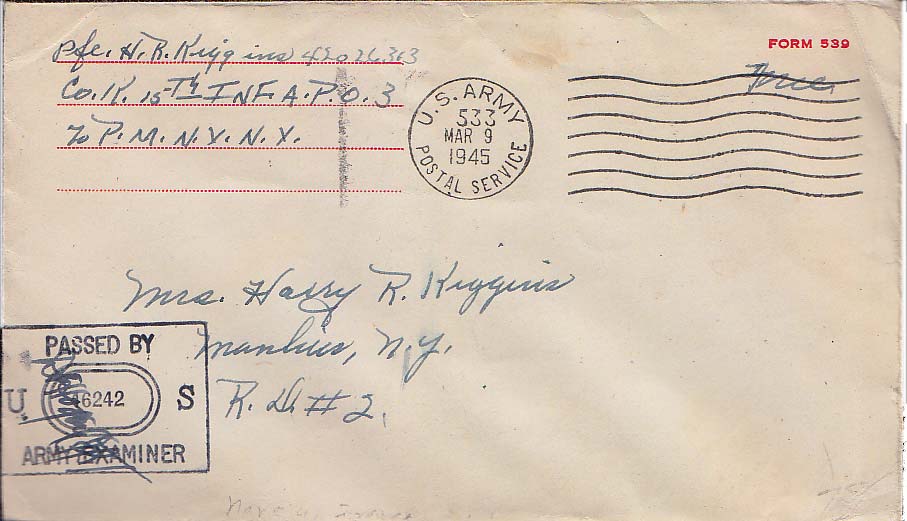 Pfc. H. R. Kiggins 42026313
Co. K. 15-Th INF. A.P.O. 3
% P.M. N.Y. N.Y.
FORM 539
Free
U.S. ARMY
533
MAR 9
1945
POSTAL SERVICE
Mrs. Harry R. Kiggins
Manlius, N.Y.
R.D. #2.
PASSED BY
U 46242 S
ARMY EXAMINER